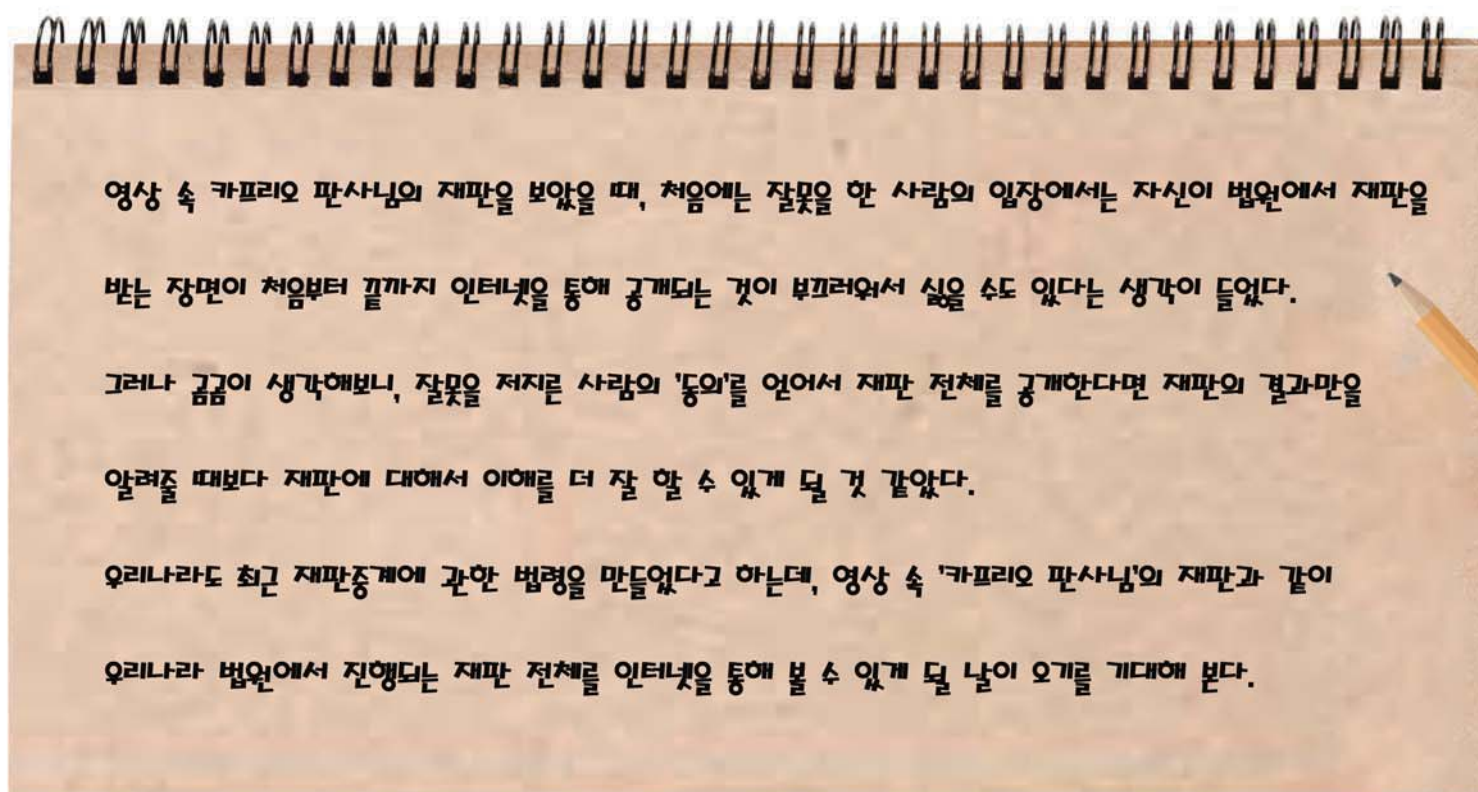 영상 속 카프리오 판사님의 재판을 보았을 때, 처음에는 잘못을 한 사람의 입장에서는 자신이 법원에서 재판을
받는 장면이 처음부터 끝까지 인터넷을 통해 공개되는 것이 부끄러워서 싫을 수도 있다는 생각이 들었다.
그러나 곰곰이 생각해보니, 잘못을 저지른 사람의 '동의'를 얻어서 재판 전체를 공개한다면 재판의 결과만을
알려줄 때보다 재판에 대해서 이해를 더 잘 할 수 있게 될 것 같았다.
우리나라도 최근 재판중계에 관한 법령을 만들었다고 하는데, 영상 속 '카프리오 판사님'의 재판과 같이
우리나라 법원에서 진행되는 재판 전체를 인터넷을 통해 볼 수 있게 될 날이 오기를 기대해 본다.